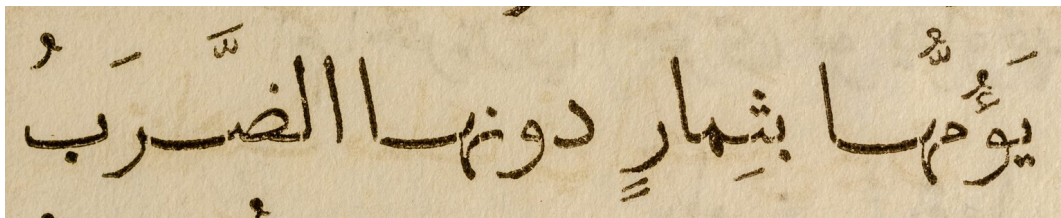 يَؤُمُّها بثِمارٍ دونها الضَّرَبُ